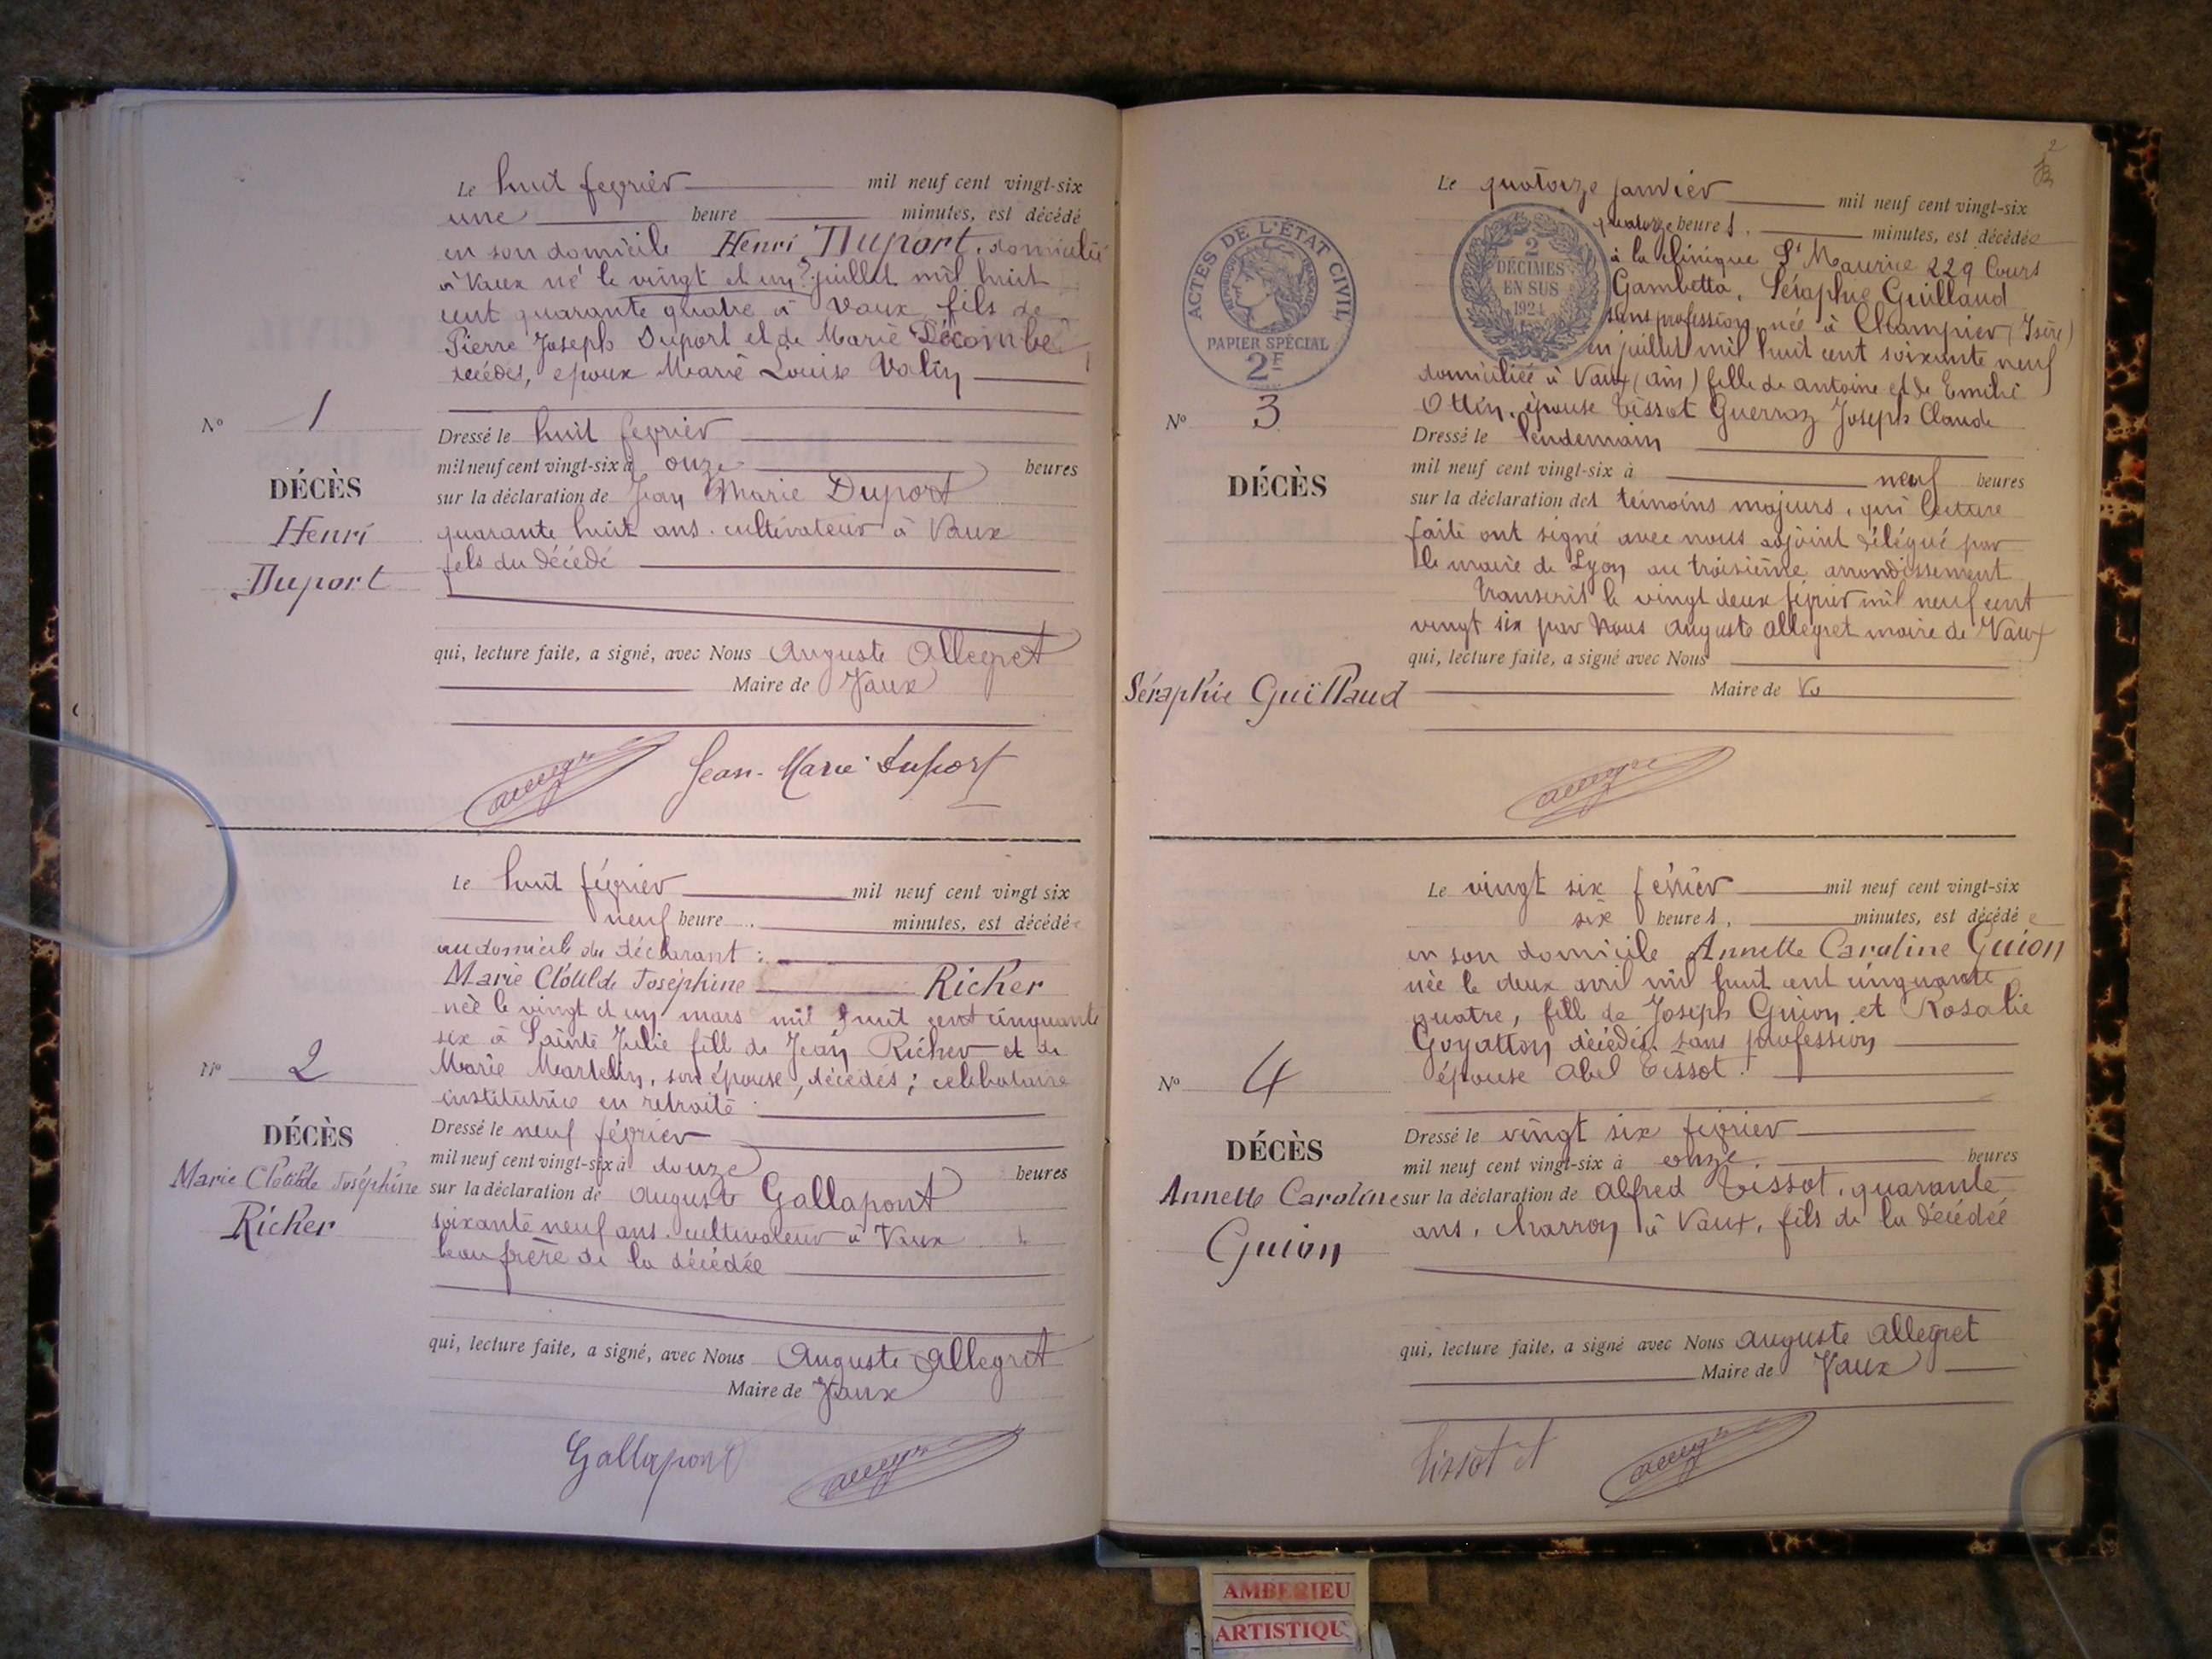 Le huit fevrier mil neuf cent vingt-six
une heure minutes, est décédé
en son domicile Henri Duport, domicilié
à Vaux né le vingt et un juillet mil huit
cent quarante quatre à Vaux fils de
Pierre Joseph Duport et de Marie Décombe
décédés, epoux Marie Louise Valin
Nº 1
DÉCÈS
Henri
Duport
Dressé le huit fevrier
mil neuf cent vingt-six à onze heures
sur la déclaration de Jean Marie Duport
quarante huit ans. cultivateur à Vaux
fils du décédé
qui, lecture faite, a signé, avec Nous Auguste Allegret
Maire de Vaux
Jean-Marie Duport
Le huit février mil neuf cent vingt six
neuf heure minutes, est décédée
au domicile du déclarant :
Marie Clotilde Joséphine Richer
née le vingt et un mars mil huit cent cinquante
six à Sainte Julie fille de Jean Richer et de
Marie Martelin, son épouse, décédés ; celibataire
institutrice en retraite
Nº 2
DÉCÈS
Marie Clotilde Joséphine
Richer
Dressé le neuf février
mil neuf cent vingt-six à douze heures
sur la déclaration de Auguste Gallapont
soixante neuf ans. cultivateur à Vaux
beau frère de la décédée
qui, lecture faite, a signé, avec Nous Auguste Allegret
Maire de Vaux
Gallapont
2
ACTES DE L'ÉTAT CIVIL
PAPIER SPÉCIAL
2F
2
DÉCIMES
EN SUS
1924
Le quatorze janvier mil neuf cent vingt-six
quatorze heures. minutes, est décédée
à la clinique St Maurice 229 Cours
Gambetta, Séraphie Guillaud
sans profession, née à Champier (Isère)
en juillet mil huit cent soixante neuf
domiciliée à Vaux (Ain) fille de antoine et de Emilie
Ottin, épouse Tissot Guerraz Joseph Claude
Nº 3
DÉCÈS
Séraphie Guillaud
Dressé le lendemain
mil neuf cent vingt-six à neuf heures
sur la déclaration des témoins majeurs, qui lecture
faite ont signé avec nous adjoint délégué par
le maire de Lyon au troisième arrondissement
Transcrit le vingt deux février mil neuf cent
vingt six par Nous Auguste Allegret maire de Vaux
qui, lecture faite, a signé avec Nous
Maire de Va
Le vingt six février mil neuf cent vingt-six
six heures, minutes, est décédée
en son domicile Annette Caroline Guion
née le deux avril mil huit cent cinquante
quatre, fille de Joseph Guion et Rosalie
Goyatton décédés. sans profession
épouse Abel Tissot.
Nº 4
DÉCÈS
Annette Caroline
Guion
Dressé le vingt six fevrier
mil neuf cent vingt-six à onze heures
sur la déclaration de Alfred Tissot, quarante
ans, charron à Vaux, fils de la décédée
qui, lecture faite, a signé avec Nous Auguste Allegret
Maire de Vaux
Tissot A
AMBERIEU
ARTISTIQU